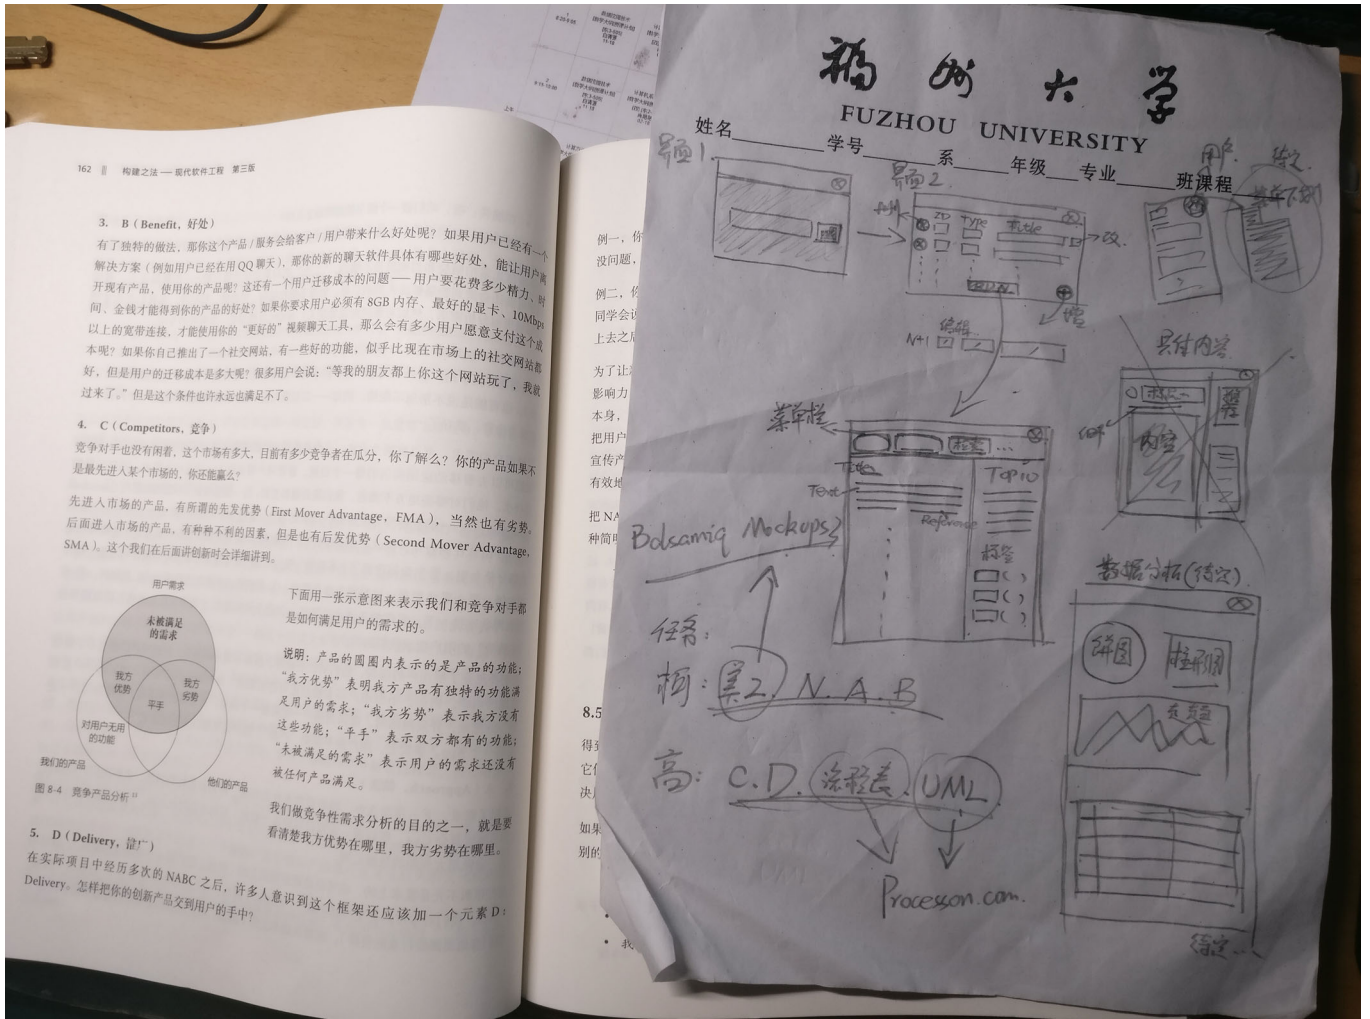 162 构建之法 — 现代软件工程 第三版
3. B（Benefit，好处）
有了独特的做法，那你这个产品/服务会给客户/用户带来什么好处呢？如果用户已经有一个
解决方案（例如用户已经在用QQ聊天），那你的新的聊天软件具体有哪些好处，能让用户离
开现有产品，使用你的产品呢？这还有一个用户迁移成本的问题——用户要花费多少精力、时
间、金钱才能得到你的产品的好处？如果你要求用户必须有8GB内存、最好的显卡、10Mbps
以上的宽带连接，才能使用你的“更好的”视频聊天工具，那么会有多少用户愿意支付这个成
本呢？如果你自己推出了一个社交网站，有一些好的功能，似乎比现在市场上的社交网站都
好，但是用户的迁移成本是多大呢？很多用户会说：“等我的朋友都上你这个网站玩了，我就
过来了。”但是这个条件也许永远也满足不了。
4. C（Competitors，竞争）
竞争对手也没有闲着，这个市场有多大，目前有多少竞争者在瓜分，你了解么？你的产品如果不
是最先进入某个市场的，你还能赢么？
先进入市场的产品，有所谓的先发优势（First Mover Advantage，FMA），当然也有劣势。
后面进入市场的产品，有种种不利的因素，但是也有后发优势（Second Mover Advantage，
SMA）。这个我们在后面讲创新时会详细讲到。
用户需求
未被满足
的需求
我方
优势
我方
劣势
平手
对用户无用
的功能
我们的产品
他们的产品
图 8-4 竞争产品分析
下面用一张示意图来表示我们和竞争对手都
是如何满足用户的需求的。
说明：产品的圆圈内表示的是产品的功能；
“我方优势”表明我方产品有独特的功能满
足用户的需求；“我方劣势”表示我方没有
这些功能；“平手”表示双方都有的功能；
“未被满足的需求”表示用户的需求还没有
被任何产品满足。
我们做竞争性需求分析的目的之一，就是要
看清楚我方优势在哪里，我方劣势在哪里。
5. D（Delivery，推广）
在实际项目中经历多次的 NABC 之后，许多人意识到这个框架还应该加一个元素 D：
Delivery。怎样把你的创新产品交到用户的手中？
例一，你
没问题，
例二，你
同学会说
上去之后
为了让
影响力
本身，
把用户
宣传产
有效地
把 NA
种简明
8.5
得到
它们
决
如果
别的
• 我
福州大学
FUZHOU UNIVERSITY
姓名 学号 系 年级 专业 班课程
界面1
界面2
ID Type Title
改
增
编辑
N+1
用户
待定
菜单下拉
具体内容
内容
菜单栏
检索 ...
Title
Text
Reference
Top10
标签
( )
( )
( )
Balsamiq Mockups3
任务:
柯: 美2. N. A. B
高: C. D. 流程表. UML
Processon.com.
数据分析(待定)
饼图
柱形图
待定...